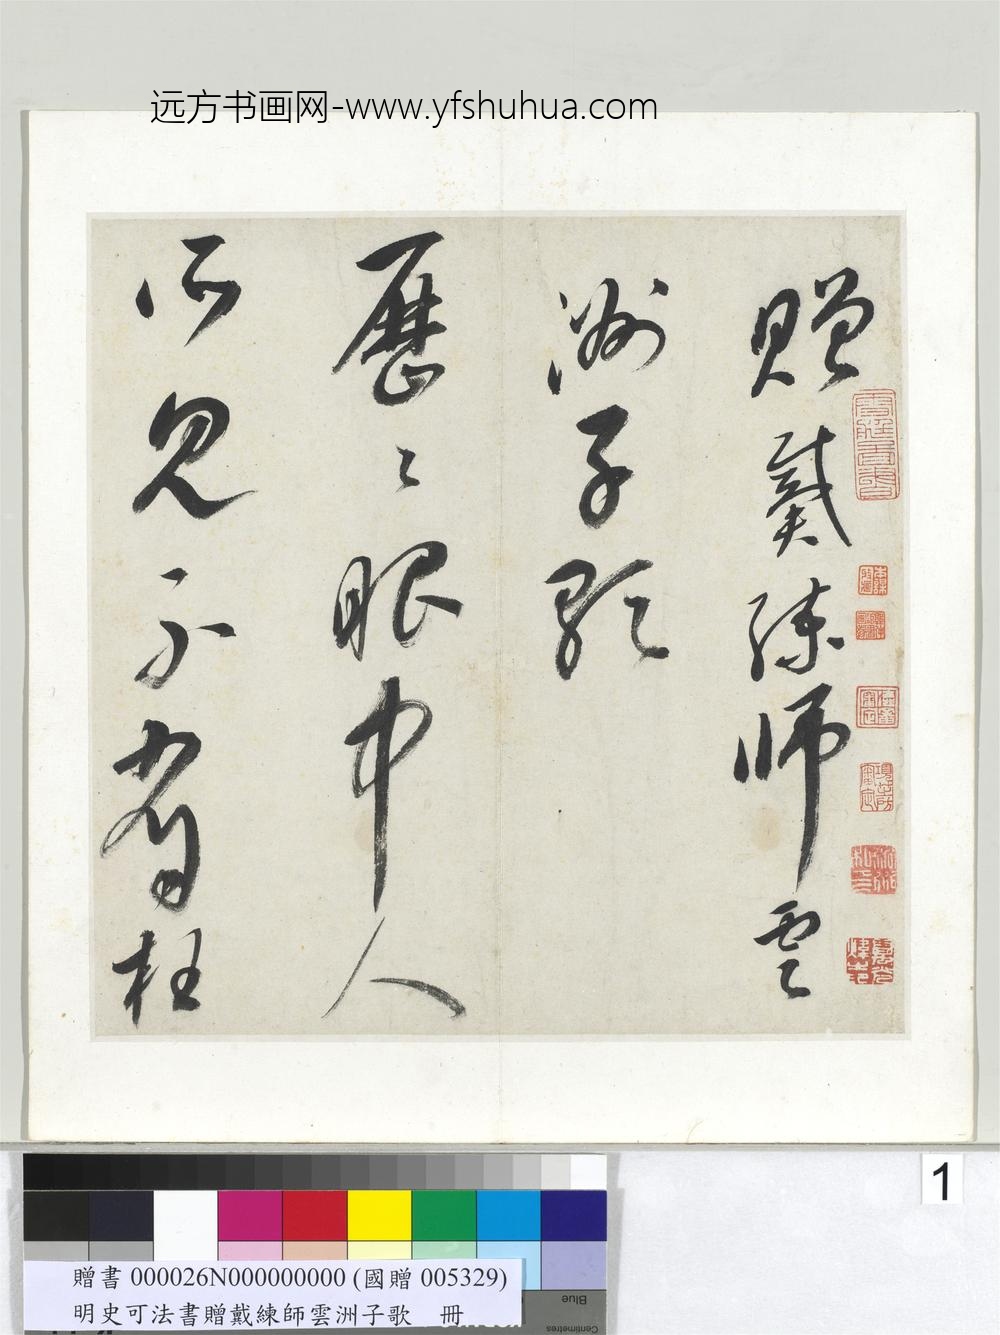 远方书画网-www.yfshuhua.com
贈戴練師雲
洲子歌
歷〻眼中人
所見不省枉
1
贈書 000026N000000000 (國贈 005329)
明史可法書贈戴練師雲洲子歌 冊
Blue
Centimetres